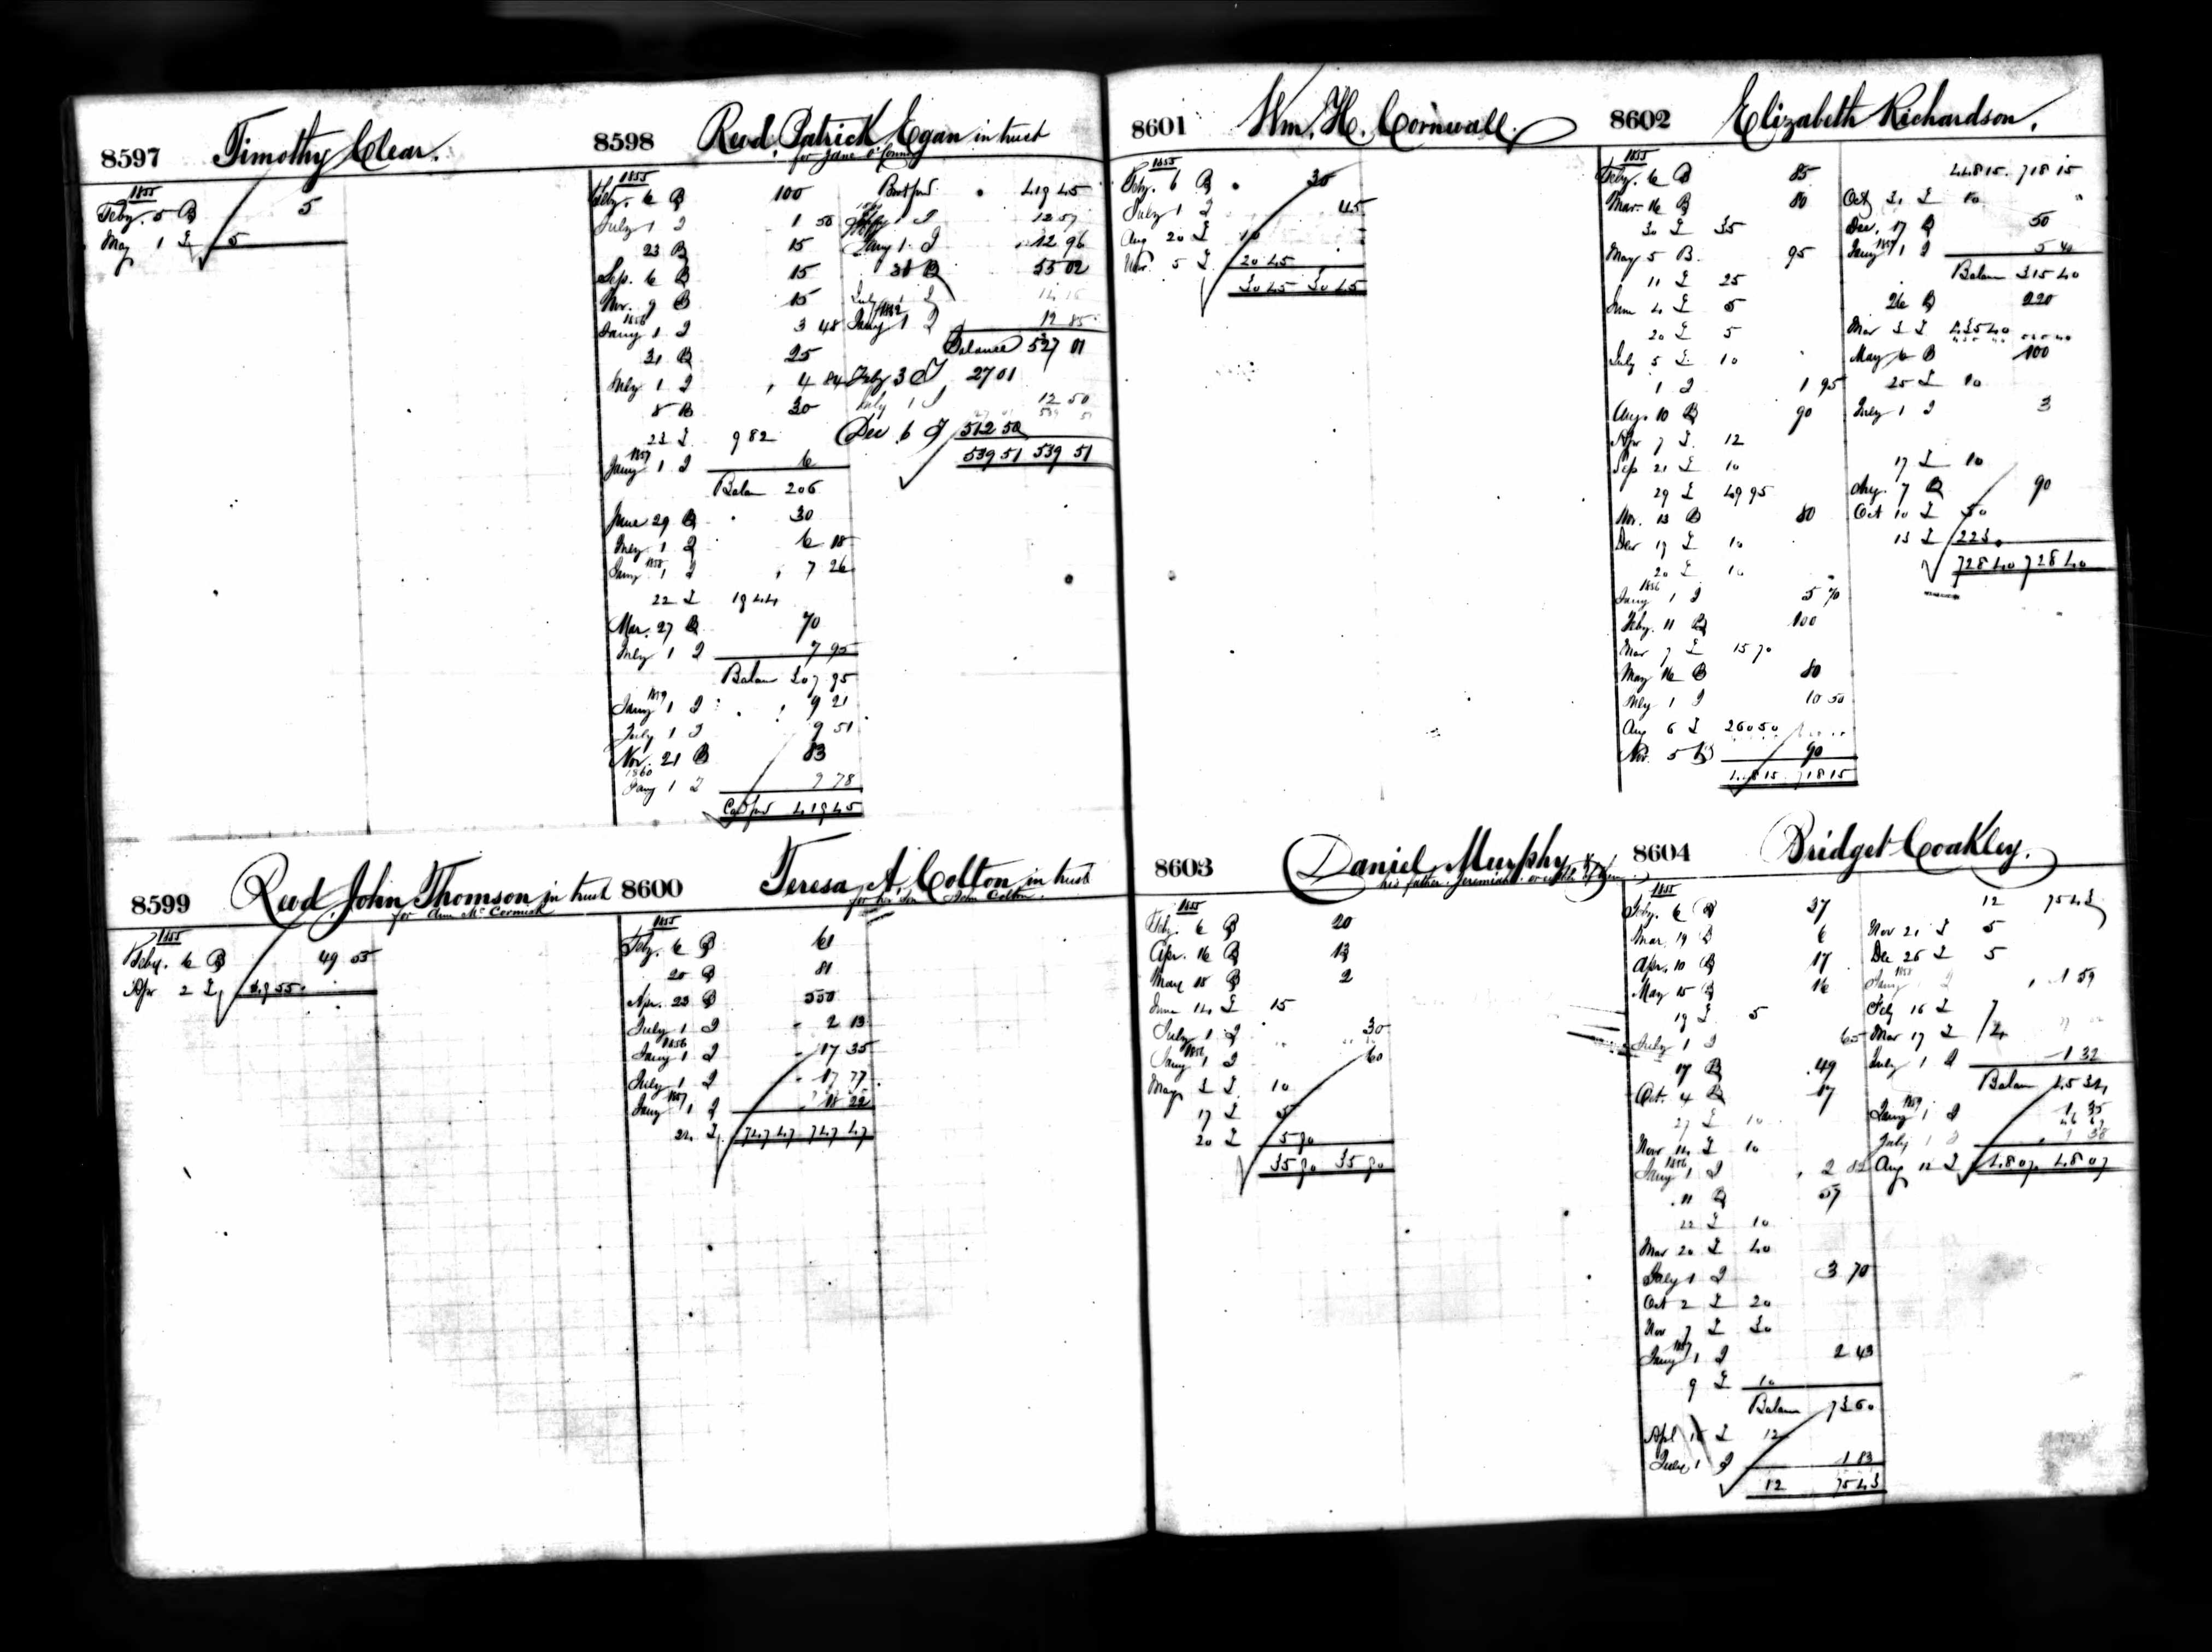 8597 Timothy Clear.
1855
Feby. 5 B 5
May 1 I 5
8598 Revd. Patrick Egan in trust
for Jane O'Connor
1855
Feby. 6 B 100
July 1 I 1 50
23 B 15
Sep. 6 B 15
Nov. 9 B 15
1856
Jany 1 I 3 48
31 B 25
July 1 I 4 84
8 B 30
23 I 9 82
1857
Jany 1 I 6
Balan 206
June 29 B 30
July 1 I 6 18
1858
Jany 1 I 7 26
22 I 19 44
Mar. 27 B 70
July 1 I 7 95
Balan 307 95
1859
Jany 1 I 9 21
July 1 I 9 51
Nov. 21 B 83
1860
Jany 1 I 9 78
Cd fwd 419 45
Bt fwd. 419 45
July 1 I 12 57
Jany 1 I 12 96
31 B 55 02
July 1 I
1862
Jany 1 I 12 85
Balance 527 01
Feby 3 I 27 01
July 1 I 12 50
Dec 6 I 512 50
539 51 539 51
8599 Revd. John Thomson in trust
for Ann McCormick
1855
Feby. 6 B 49 55
Apr 2 I 49 55
8600 Teresa A. Colton in trust
for her Son John Colton.
1855
Feby. 6 B 61
20 B 81
Apr. 23 B 550
July 1 I 2 13
1856
Jany 1 I 17 35
July 1 I 17 77
1857
Jany 1 I 18 22
24 I 747 47 747 47
8601 Wm. H. Cornwall.
1855
Feby. 6 B 30
July 1 I 45
Aug 20 I 10
Nov. 5 I 20 45
30 45 30 45
8602 Elizabeth Richardson.
1855
Feby. 6 B 85
Mar. 16 B 80
30 I 35
May 5 B 95
11 I 25
June 4 I 5
20 I 5
July 5 I 10
1 I 1 95
Aug. 10 B 90
Apr 7 I 12
Sep 21 I 10
29 I 49 95
Nov. 13 B 80
Dec 17 I 10
20 I 10
1856
Jany 1 I 5 70
Feby. 11 B 100
Mar 7 I 15 70
May 16 B 80
July 1 I 10 50
Aug 6 I 260 50
Nov. 5 B 90
448 15 718 15
448 15 718 15
Oct 31 I 10
Dec. 17 B 50
1857
Jany 1 I 5 40
Balan 315 40
26 B 220
Mar 3 I 435 40
May 6 B 100
25 I 10
July 1 I 3
17 I 10
Aug. 7 B 90
Oct 10 I 50
13 I 223
728 40 728 40
8603 Daniel Murphy,
his father Jeremiah or either of them
1855
Feby. 6 B 20
Apr. 16 B 13
May 15 B 2
June 14 I 15
July 1 I 30
1856
Jany 1 I 60
May 3 I 10
17 I 5
20 I 5 90
35 90 35 90
8604 Bridget Coakley.
1855
Feby. 6 B 37
Mar. 19 B 6
Apr. 10 B 17
May 15 B 16
19 I 5
July 1 I 65
17 B 49
Oct. 4 B 17
27 I 10
Nov 14 I 10
1856
Jany 1 I 2 82
11 B 57
22 I 10
Mar 20 I 40
July 1 I 3 70
Oct 2 I 20
Nov 7 I 30
1857
Jany 1 I 2 43
9 I 10
Balan 73 60
Apl 15 I 12
July 1 I 1 83
12 75 43
12 75 43
Nov 21 I 5
Dec 26 I 5
1858
Jany 1 I 1 59
Feby 16 I 7
Mar 17 I
July 1 I 1 32
Balan 45 34
1859
Jany 1 I 1 35
July 1 I 1 38
Aug 12 I 48 07 48 07